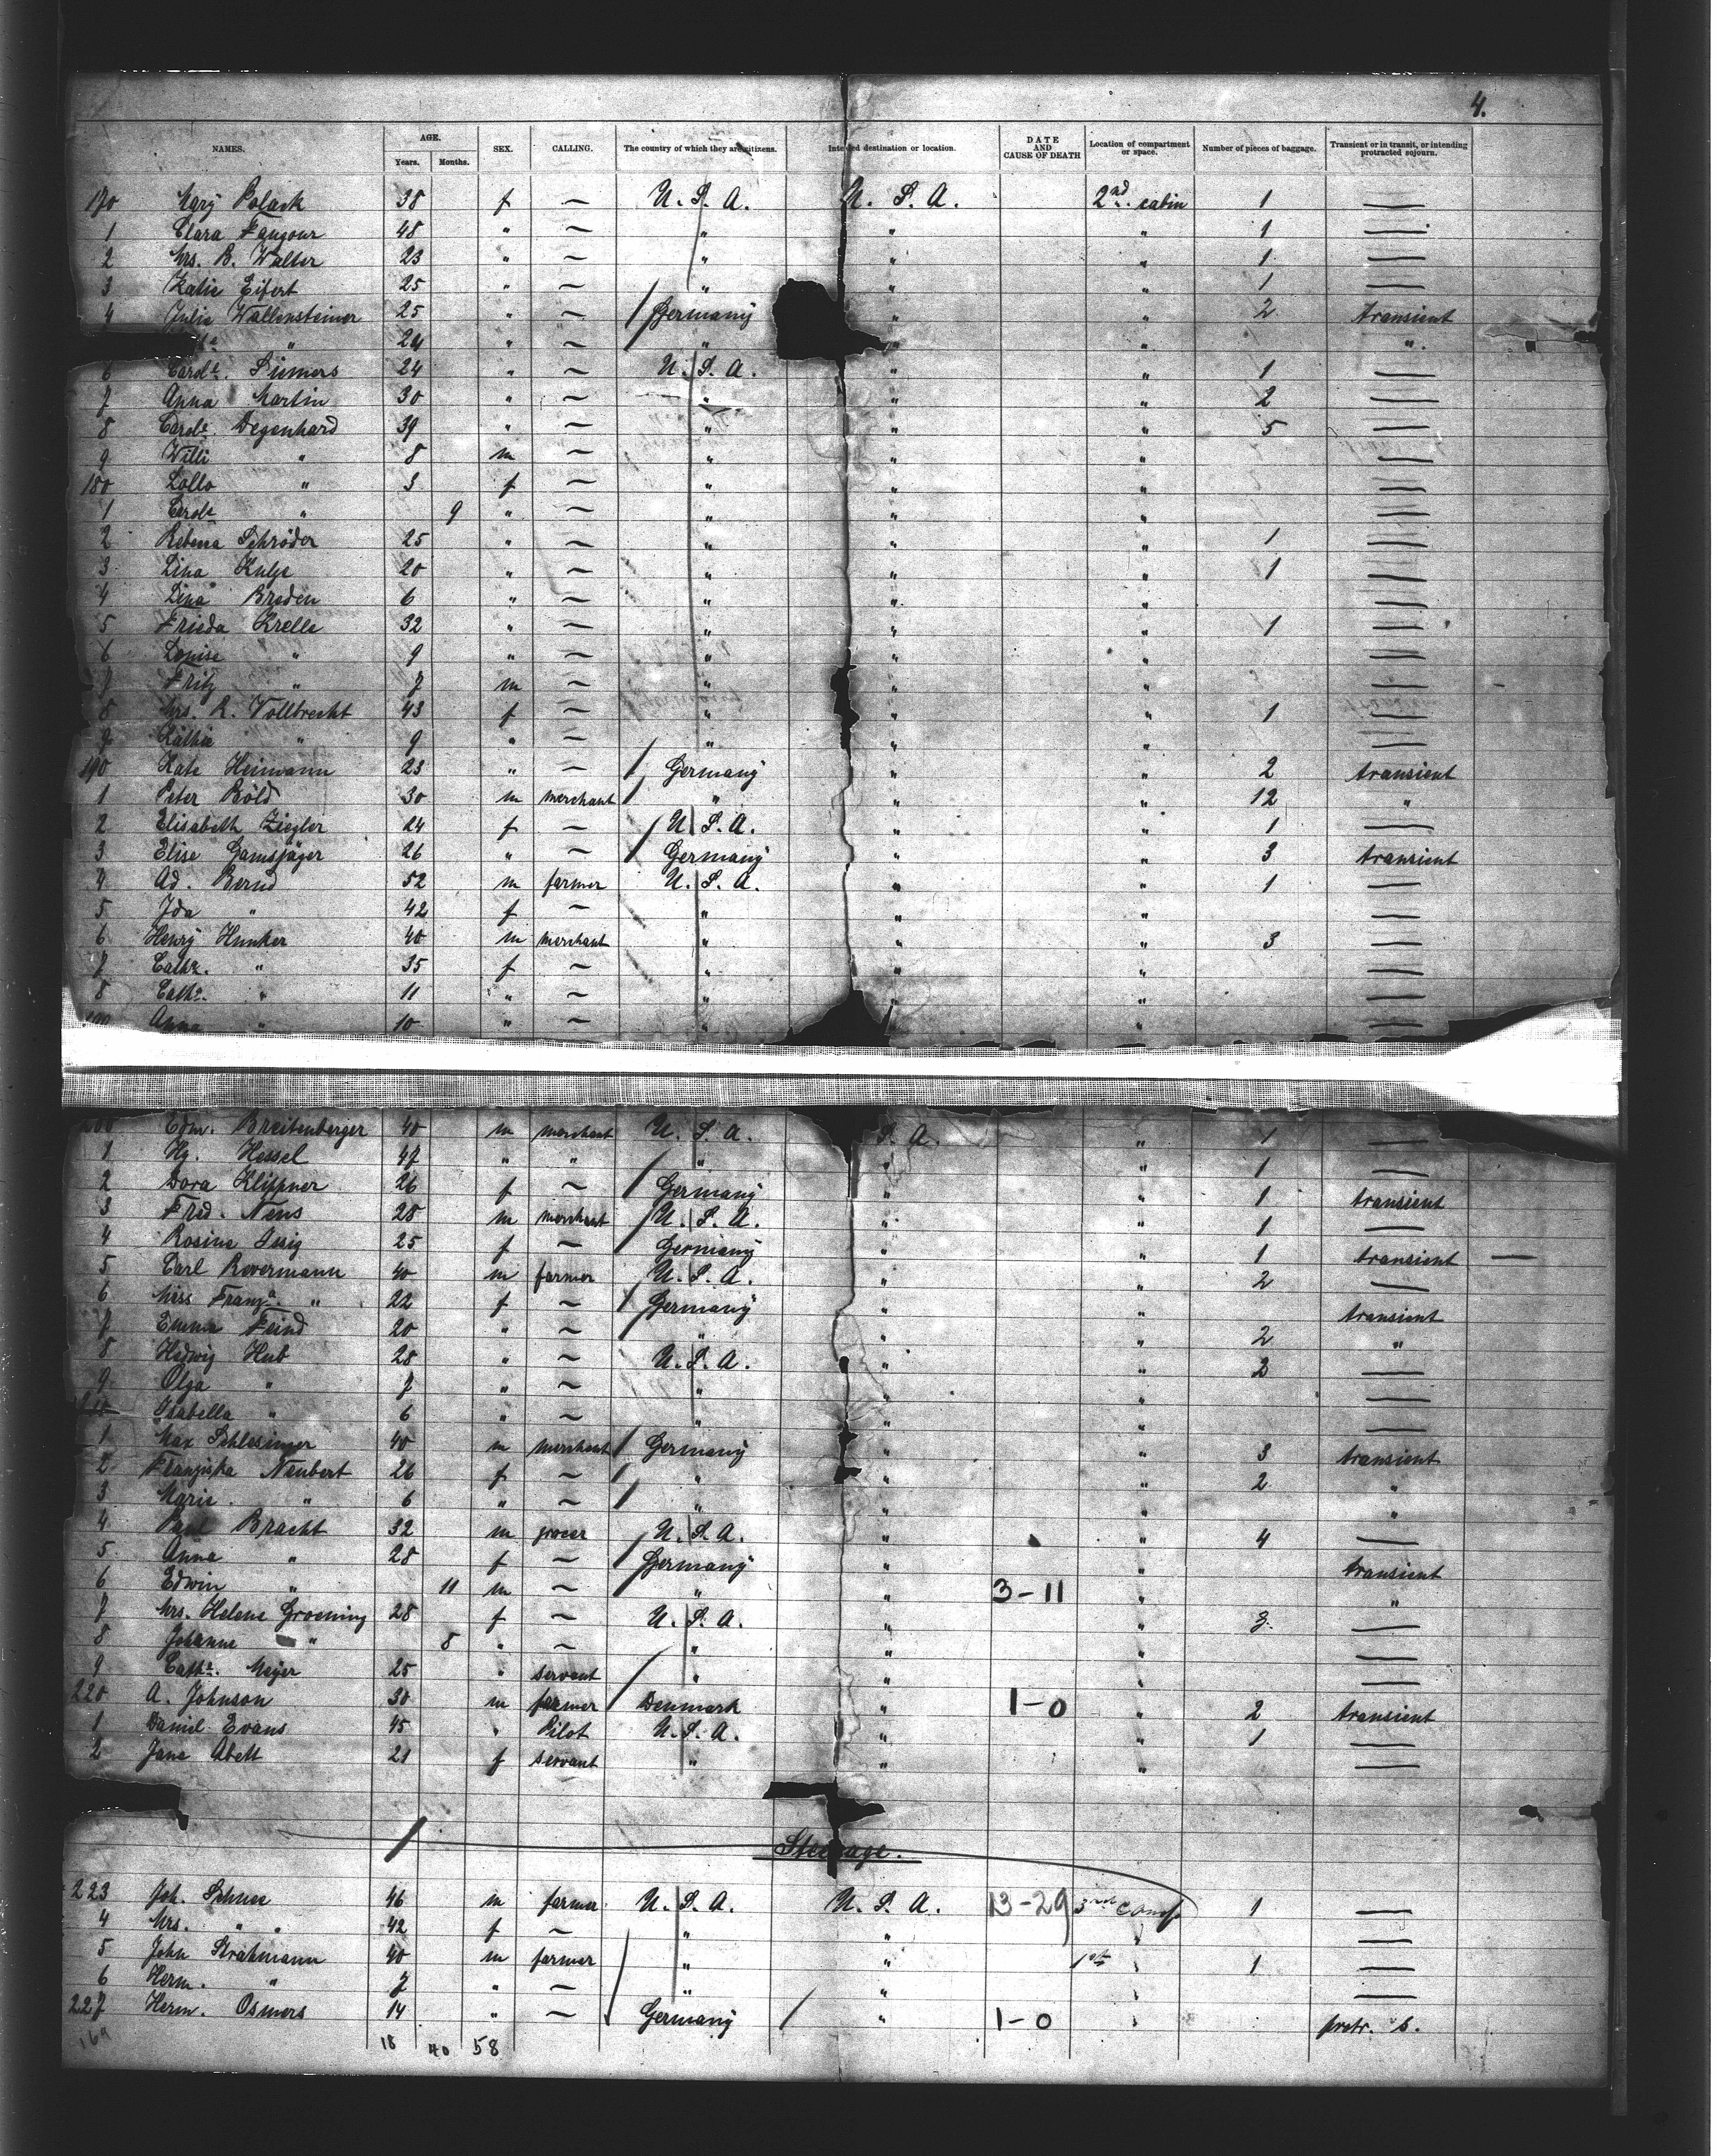 4.
NAMES. AGE. Years. Months. SEX. CALLING. The country of which they are citizens. Intended destination or location. DATE AND CAUSE OF DEATH Location of compartment or space. Number of pieces of baggage. Transient or in transit, or intending protracted sojourn.
170 Mary Polack 38 f — U. S. A. U. S. A. 2nd cabin 1 —
1 Clara 48 " — " " " 1 —
2 Mrs. B. Walter 23 " — " " " 1 —
3 Katie Eifert 25 " — " " " 1 —
4 Julie Wallensteiner 25 " — Germany " " 2 transient
" 24 " — " " " "
6 Carole. Siemers 24 " — U. S. A. " " 1 —
7 Anna Martin 30 " — " " " 2 —
8 Carole. Degenhard 39 " — " " " 5 —
9 Willi " 8 m — " " " —
180 Lollo " 3 f — " " " —
1 Carole " 9 " — " " " —
2 Schröder 25 " — " " " 1 —
3 Lina 20 " — " " " 1 —
4 Lina Breden 6 " — " " " —
5 Frieda Krelle 32 " — " " " 1 —
6 Louise " 9 " — " " " —
7 Fritz " 7 m — " " " —
8 Mrs. R. Vollbrecht 43 f — " " " 1 —
9 Käthie " 9 " — " " " —
190 Kate Heimann 23 " — Germany " " 2 transient
1 Peter Böld 30 m merchant " " " 12 "
2 Elisabeth Ziegler 24 f — U. S. A. " " 1 —
3 Elise Gamsjäger 26 " — Germany " " 3 transient
4 Ad. Bernd 52 m farmer U. S. A. " " 1 —
5 Ida " 42 f — " " " —
6 Henry Hunker 40 m merchant " " " 3 —
7 Cath. " 35 f — " " " —
8 Cath. " 11 " — " " " —
199 Anna " 10 " — " " —
200 Edm. Breitenberger 40 m merchant U. S. A. S. A. " 1 —
1 Hy. Hessel 47 " " " " " 1 —
2 Dora Klippner 26 f — Germany " " 1 transient
3 Fred. Nens 28 m merchant U. S. A. " " 1 —
4 Rosine Issig 25 f — Germany " " 1 transient —
5 Carl Revermann 40 m farmer U. S. A. " " 2 —
6 Miss Franza. " 22 f — Germany " " transient
7 Emma Feind 20 " — " " " 2 "
8 Hedwig Hub 28 " — U. S. A. " " 2 —
9 Olga " 7 " — " " " —
210 Isabella " 6 " — " " " —
1 Max Schlesinger 40 m merchant Germany " " 3 transient
2 Franziska Neubert 26 f — " " " 2 "
3 Marie " 6 " — " " " "
4 Paul Bracht 32 m grocer U. S. A. " " 4 —
5 Anna " 28 f — Germany " " transient
6 Edwin " 11 m — " " 3-11 " "
7 Mrs. Helene Groening 28 f — U. S. A. " " 3 —
8 Johanne " 8 " — " " " —
9 Cathe. Meyer 25 " servant " " " —
220 A. Johnson 30 m farmer Denmark " 1-0 " 2 transient
1 Daniel Evans 45 " Pilot U. S. A. " " 1 —
2 Jane Abett 21 f servant " " " —
Steerage.
223 Joh. Schnee 46 m farmer U. S. A. U. S. A. 13-29 3rd Comp 1 —
4 Mrs. " 42 f — " " " —
5 John Strahmann 40 m farmer " " 1st 1 —
6 Herm. " 7 " — " " —
227 Herm. Osmers 14 " — Germany " 1-0 protr. s.
169 18 40 58